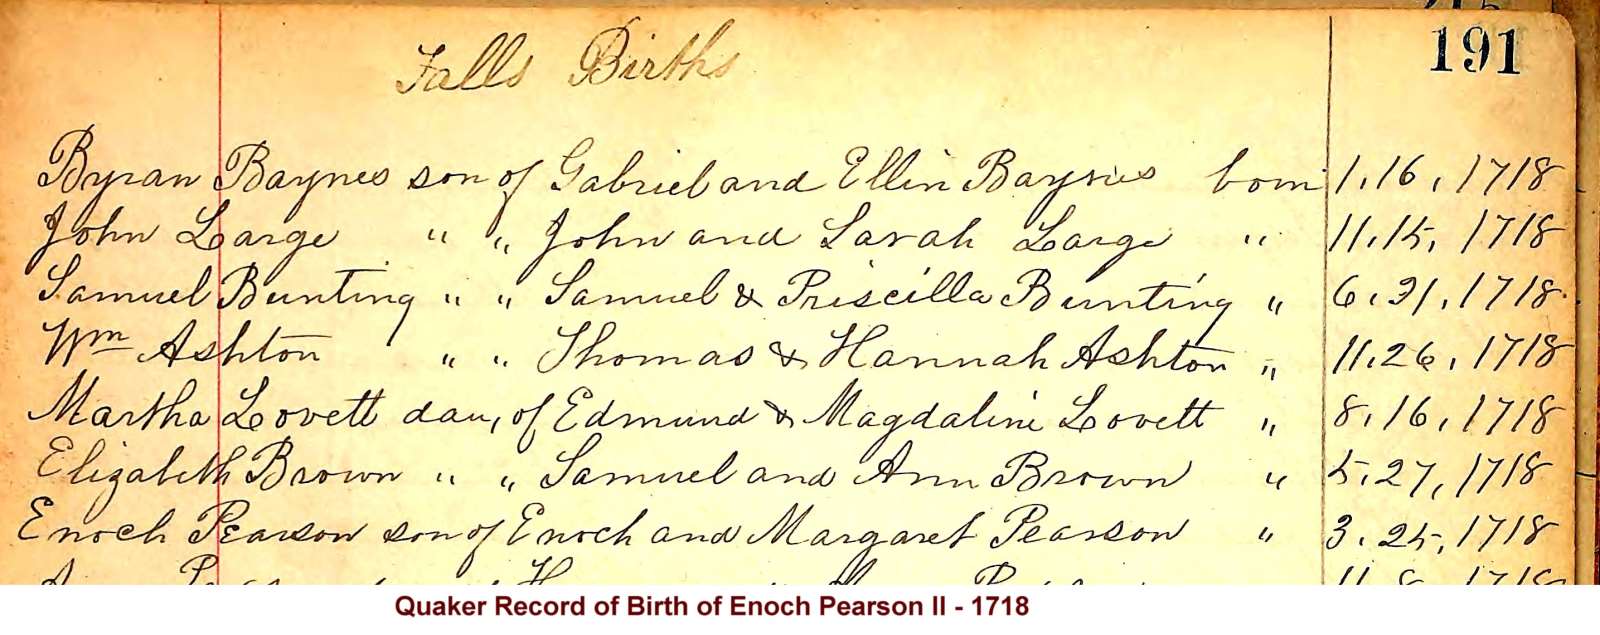 191
Falls Births
Byran Baynes son of Gabriel and Ellin Baynes born 1,16,1718
John Large " " John and Sarah Large " 11,15,1718
Samuel Bunting " " Samuel & Priscilla Bunting " 6,31,1718
Wm Ashton " " Thomas & Hannah Ashton " 11,26,1718
Martha Lovett dau, of Edmund & Magdaline Lovett " 8,16,1718
Elizabeth Brown " " Samuel and Ann Brown " 5,27,1718
Enoch Pearson son of Enoch and Margaret Pearson " 3,25,1718
Quaker Record of Birth of Enoch Pearson II - 1718